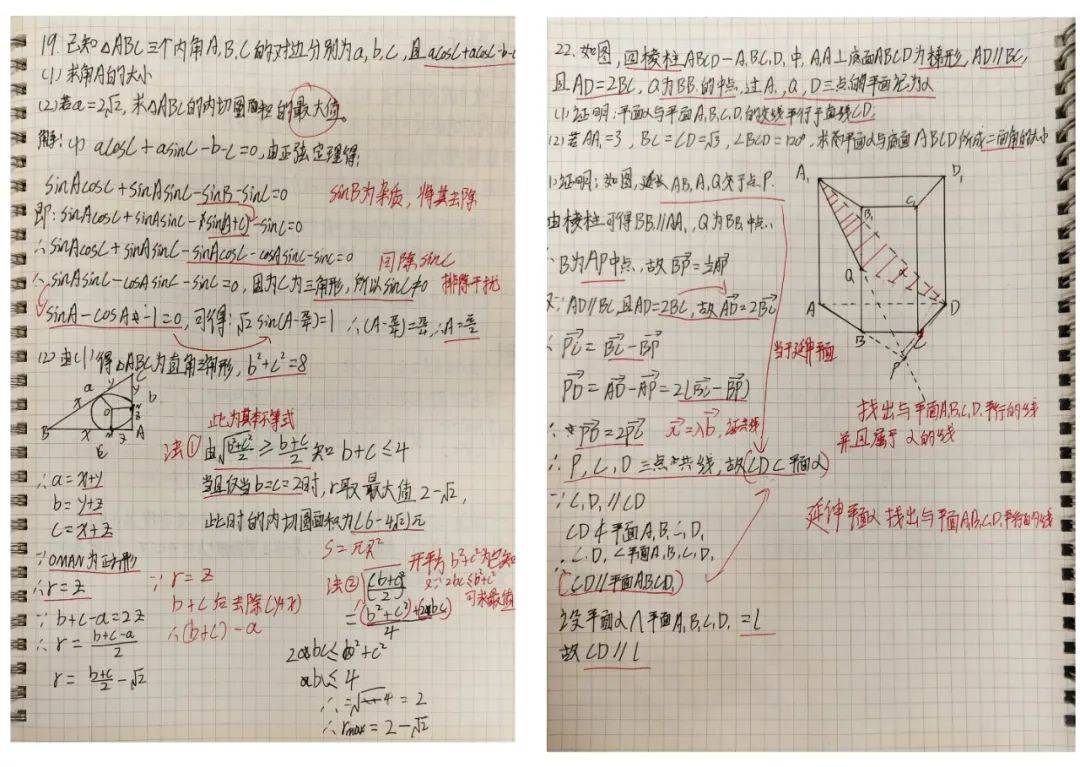 19. 已知△ABC三个内角A,B,C的对边分别为a,b,c,且acosC+acosC-b-c
(1) 求角A的大小
(2)若a=2√2,求△ABC的内切圆面积的最大值。
解:(1) acosC+asinC-b-c=0,由正弦定理得:
sinAcosC+sinAsinC-sinB-sinC=0
sinB为杂质,将其去除
即:sinAcosC+sinAsinC-sin(A+C)-sinC=0
∴sinAcosC+sinAsinC-sinAcosC-cosAsinC-sinC=0
同除sinC
∴sinAsinC-cosAsinC-sinC=0,因为C为三角形,所以sinC≠0
排除干扰
sinA-cosA-1=0,可得:√2sin(A-π/4)=1 ∴(A-π/4)=π/4,∴A=π/2
(2) 由(1)得△ABC为直角三角形,b²+c²=8
C
a
y
y
b
x
O
N
z
B
x
E
z
A
此为基本不等式
法① 由√((b²+c²)/2)≥(b+c)/2知b+c≤4
当且仅当b=c=2时,r取最大值2-√2,
此时的内切圆面积为(6-4√2)π
S=πR²
∴a=x+y
b=y+z
c=x+z
∵OMAN为正方形
∴r=z
∵b+c-a=2z
∴r=(b+c-a)/2
r=(b+c)/2-√2
∵r=z
b+c后去除(y+x)
∴(b+c)-a
法② √((b+c)²/2)
开平方b²+c²为已知
又∵2bc≤b²+c²
可求最值
=((b²+c²)+2bc)/4
2bc≤b²+c²
bc≤4
∴=√4=2
∴rmax=2-√2
22.如图,四棱柱ABCD-A₁B₁C₁D₁中,A₁A⊥底面ABCD为梯形,AD∥BC,
且AD=2BC,Q为BB₁的中点,过A₁,Q,D三点的平面记为α
(1)证明:平面α与平面A₁B₁C₁D₁的交线平行于直线CD
(2)若AA₁=3,BC=CD=√3,∠BCD=120°,求平面α与底面ABCD所成二面角的大小
1)证明:如图,延长AB,A₁Q交于点P.
由棱柱可得BB₁∥AA₁,Q为BB₁中点,
∴B为AP中点,故BP=½AP
又∵AD∥BC,且AD=2BC,故AD=2BC
∴PC=BC-BP
当于延伸平面
PD=AD-AP=2(BC-BP)
∴PD=2PC
a=λb,证共线
∴P,C,D三点共线,故(CD⊂平面α)
∵C₁D₁∥CD
CD⊄平面A₁B₁C₁D₁
∴C₁D₁⊂平面A₁B₁C₁D₁
(CD∥平面ABCD₁)
设平面α∩平面A₁B₁C₁D₁=l
故CD∥l
A₁
D₁
B₁
C₁
Q
A
D
B
C
P
找出与平面A₁B₁C₁D₁平行的线
并且属于α的线
延伸平面α找出与平面A₁B₁C₁D₁平行的线